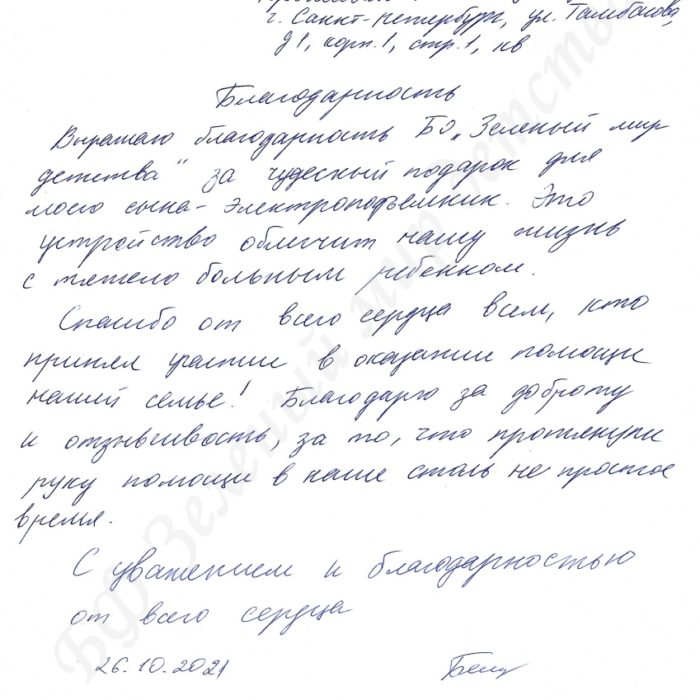 г. Санкт-Петербург, ул. Тамбасова,
д 1, корп. 1, стр. 1, кв
Благодарность
Выражаю благодарность БФ „Зеленый мир
детства“ за чудесный подарок для
моего сына - электроподъемник. Это
устройство облегчит нашу жизнь
с тяжело больным ребенком.
Спасибо от всего сердца всем, кто
принял участие в оказании помощи
нашей семье! Благодарю за доброту
и отзывчивость, за то, что протянули
руку помощи в наше столь не простое
время.
С уважением и благодарностью
от всего сердца
26.10.2021
БФ Зеленый мир детства